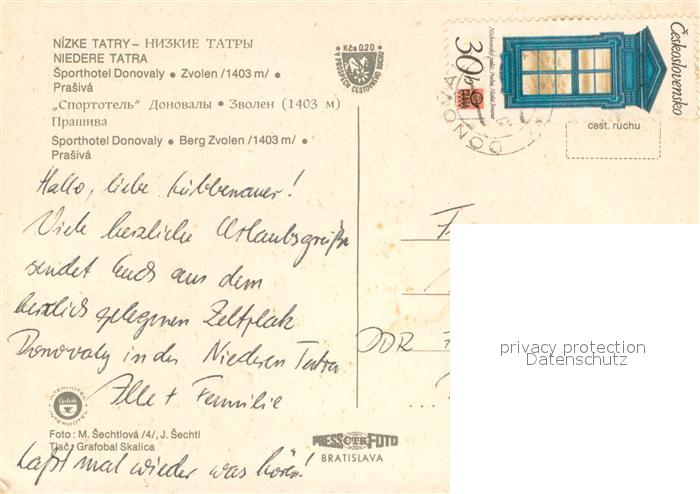 NÍZKE TATRY – НИЗКИЕ ТАТРЫ
NIEDERE TATRA
Športhotel Donovaly • Zvolen /1403 m/ •
Prašivá
„Спортотель" Доновалы • Зволен (1403 м)
Прашива
Sporthotel Donovaly • Berg Zvolen /1403 m/ •
Prašivá
Kčs 0.20
V PROSPECH CESTOVNÉHO RUCHU
30 h
Československo
DONOVA
cest. ruchu
Hallo, liebe Lübbenauer!
Viele herzliche Urlaubsgrüße
sendet Euch aus dem
herrlich gelegenen Zeltplatz
Donovaly in der Niederen Tatra
+ Familie
Laßt mal wieder was hören!
DDR
privacy protection
Datenschutz
INTERHOTEL
čedok
INTERHOTEL
Foto: M. Šechtlová /4/, J. Šechtl
Tlač: Grafobal Skalica
PRESSČTKFOTO
BRATISLAVA